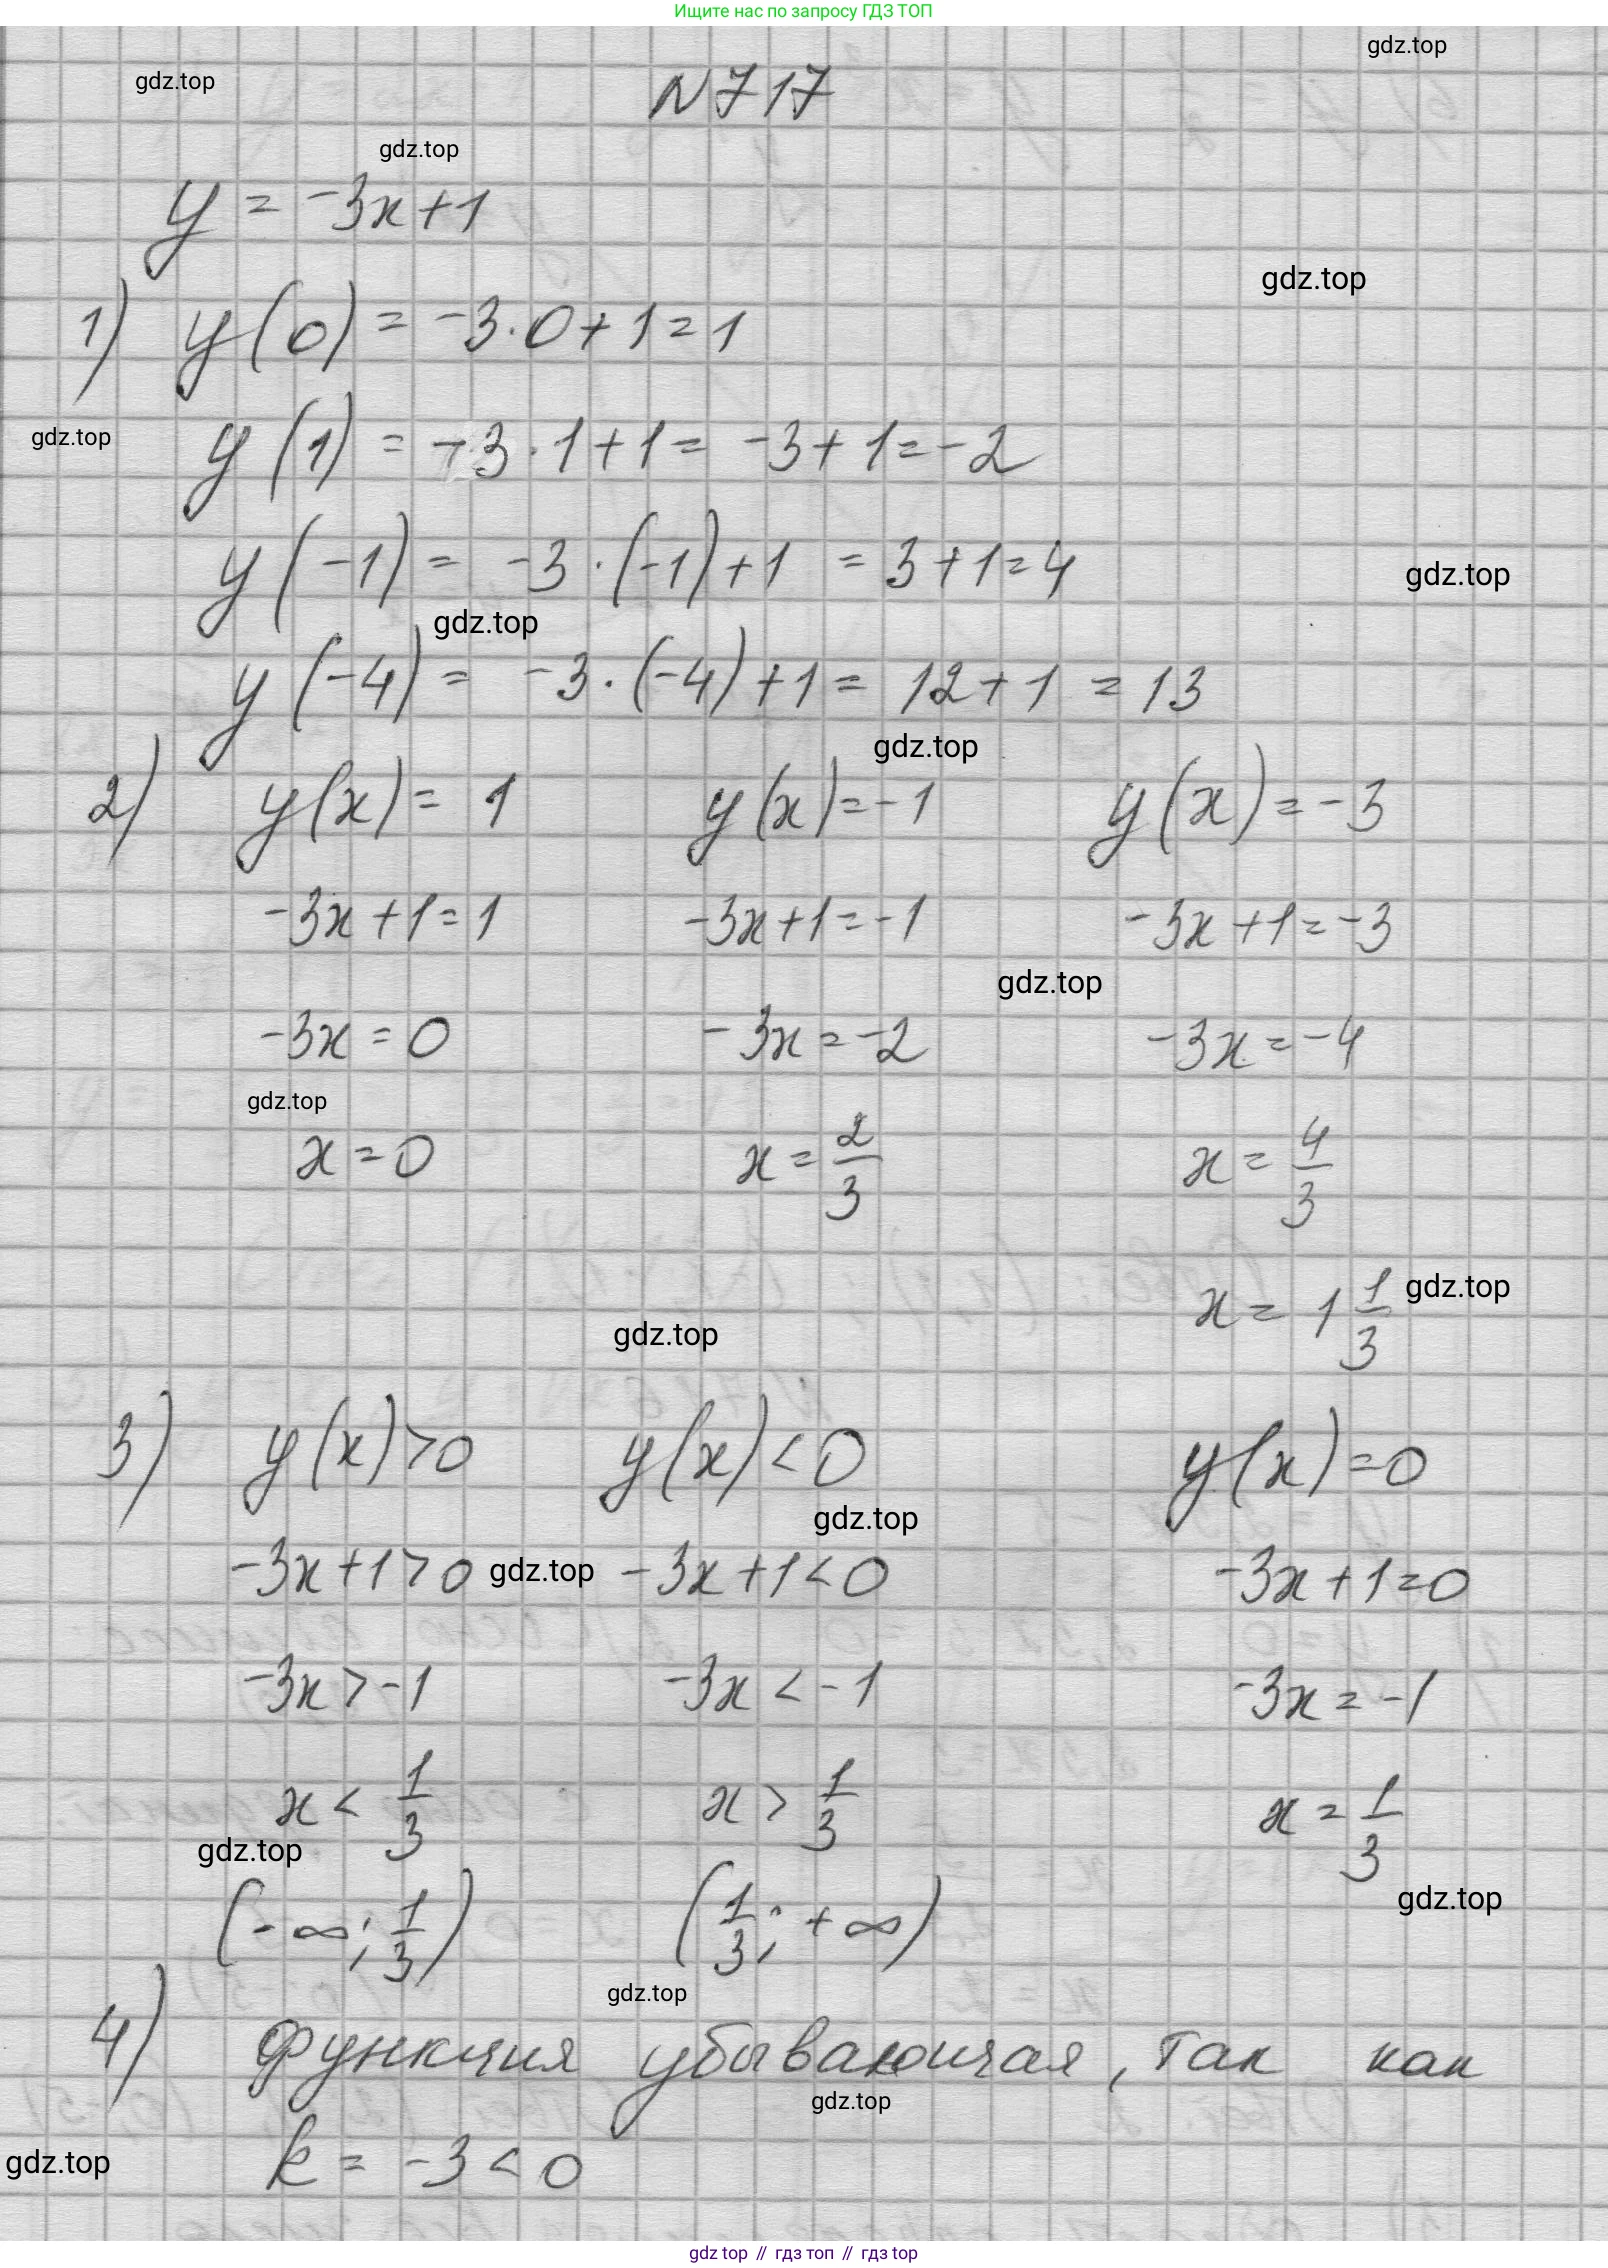 Ищите нас по запросу ГДЗ ТОП
gdz.top
gdz.top
N 717
gdz.top
y = -3x+1
gdz.top
1) y(0) = -3·0+1=1
gdz.top
y(1) = -3·1+1= -3+1=-2
y(-1) = -3·(-1)+1 = 3+1=4
gdz.top
gdz.top
y(-4) = -3·(-4)+1= 12+1 = 13
gdz.top
2) y(x)= 1 y(x)=-1 y(x)=-3
-3x+1=1 -3x+1=-1 -3x+1=-3
gdz.top
-3x=0 -3x=-2 -3x=-4
gdz.top
x=0 x=2/3 x=4/3
x= 1 1/3 gdz.top
gdz.top
3) y(x)>0 y(x)<0 y(x)=0
gdz.top
-3x+1>0 gdz.top -3x+1<0 -3x+1=0
-3x>-1 -3x<-1 -3x=-1
x<1/3 x>1/3 x=1/3
gdz.top
gdz.top
(-∞; 1/3) (1/3; +∞)
gdz.top
4) функция убывающая, так как
gdz.top
k=-3<0
gdz.top
gdz top // гдз топ // гдз top